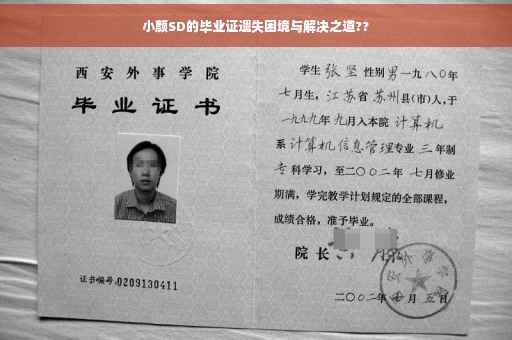 小颜SD的毕业证遗失困境与解决之道??
西安外事学院
毕业证书
证书编号:0209130411
学生 张坚 性别 男 一九八〇年
七月生，江苏省 苏州县(市)人,于
一九九九年九月入本院 计算机
系 计算机信息管理专业 三 年制
专科学习，至二〇〇二年 七月修业
期满，学完教学计划规定的全部课程，
成绩合格，准予毕业。
院长
二〇〇二年 七月 五日